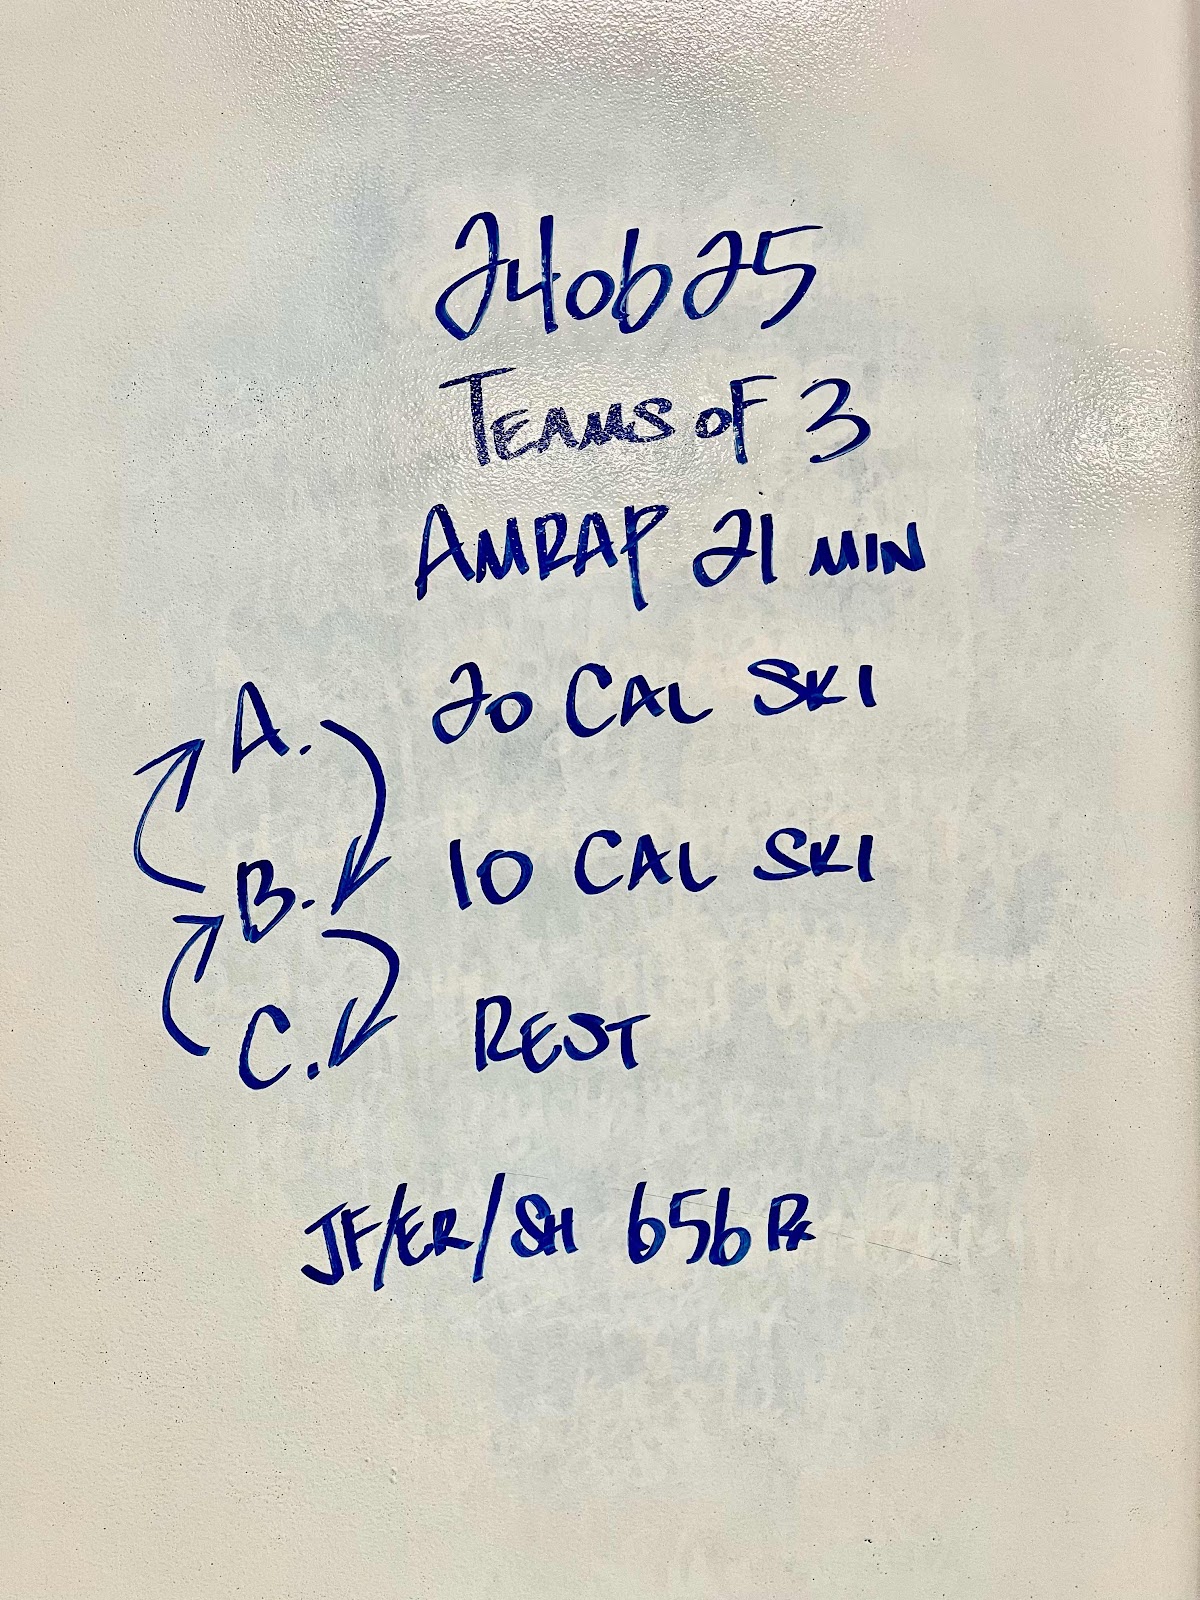 240625
TEAMS OF 3
AMRAP 21 MIN
A. 20 CAL SKI
B. 10 CAL SKI
C. REST
JF/ER/SH 656 Rx